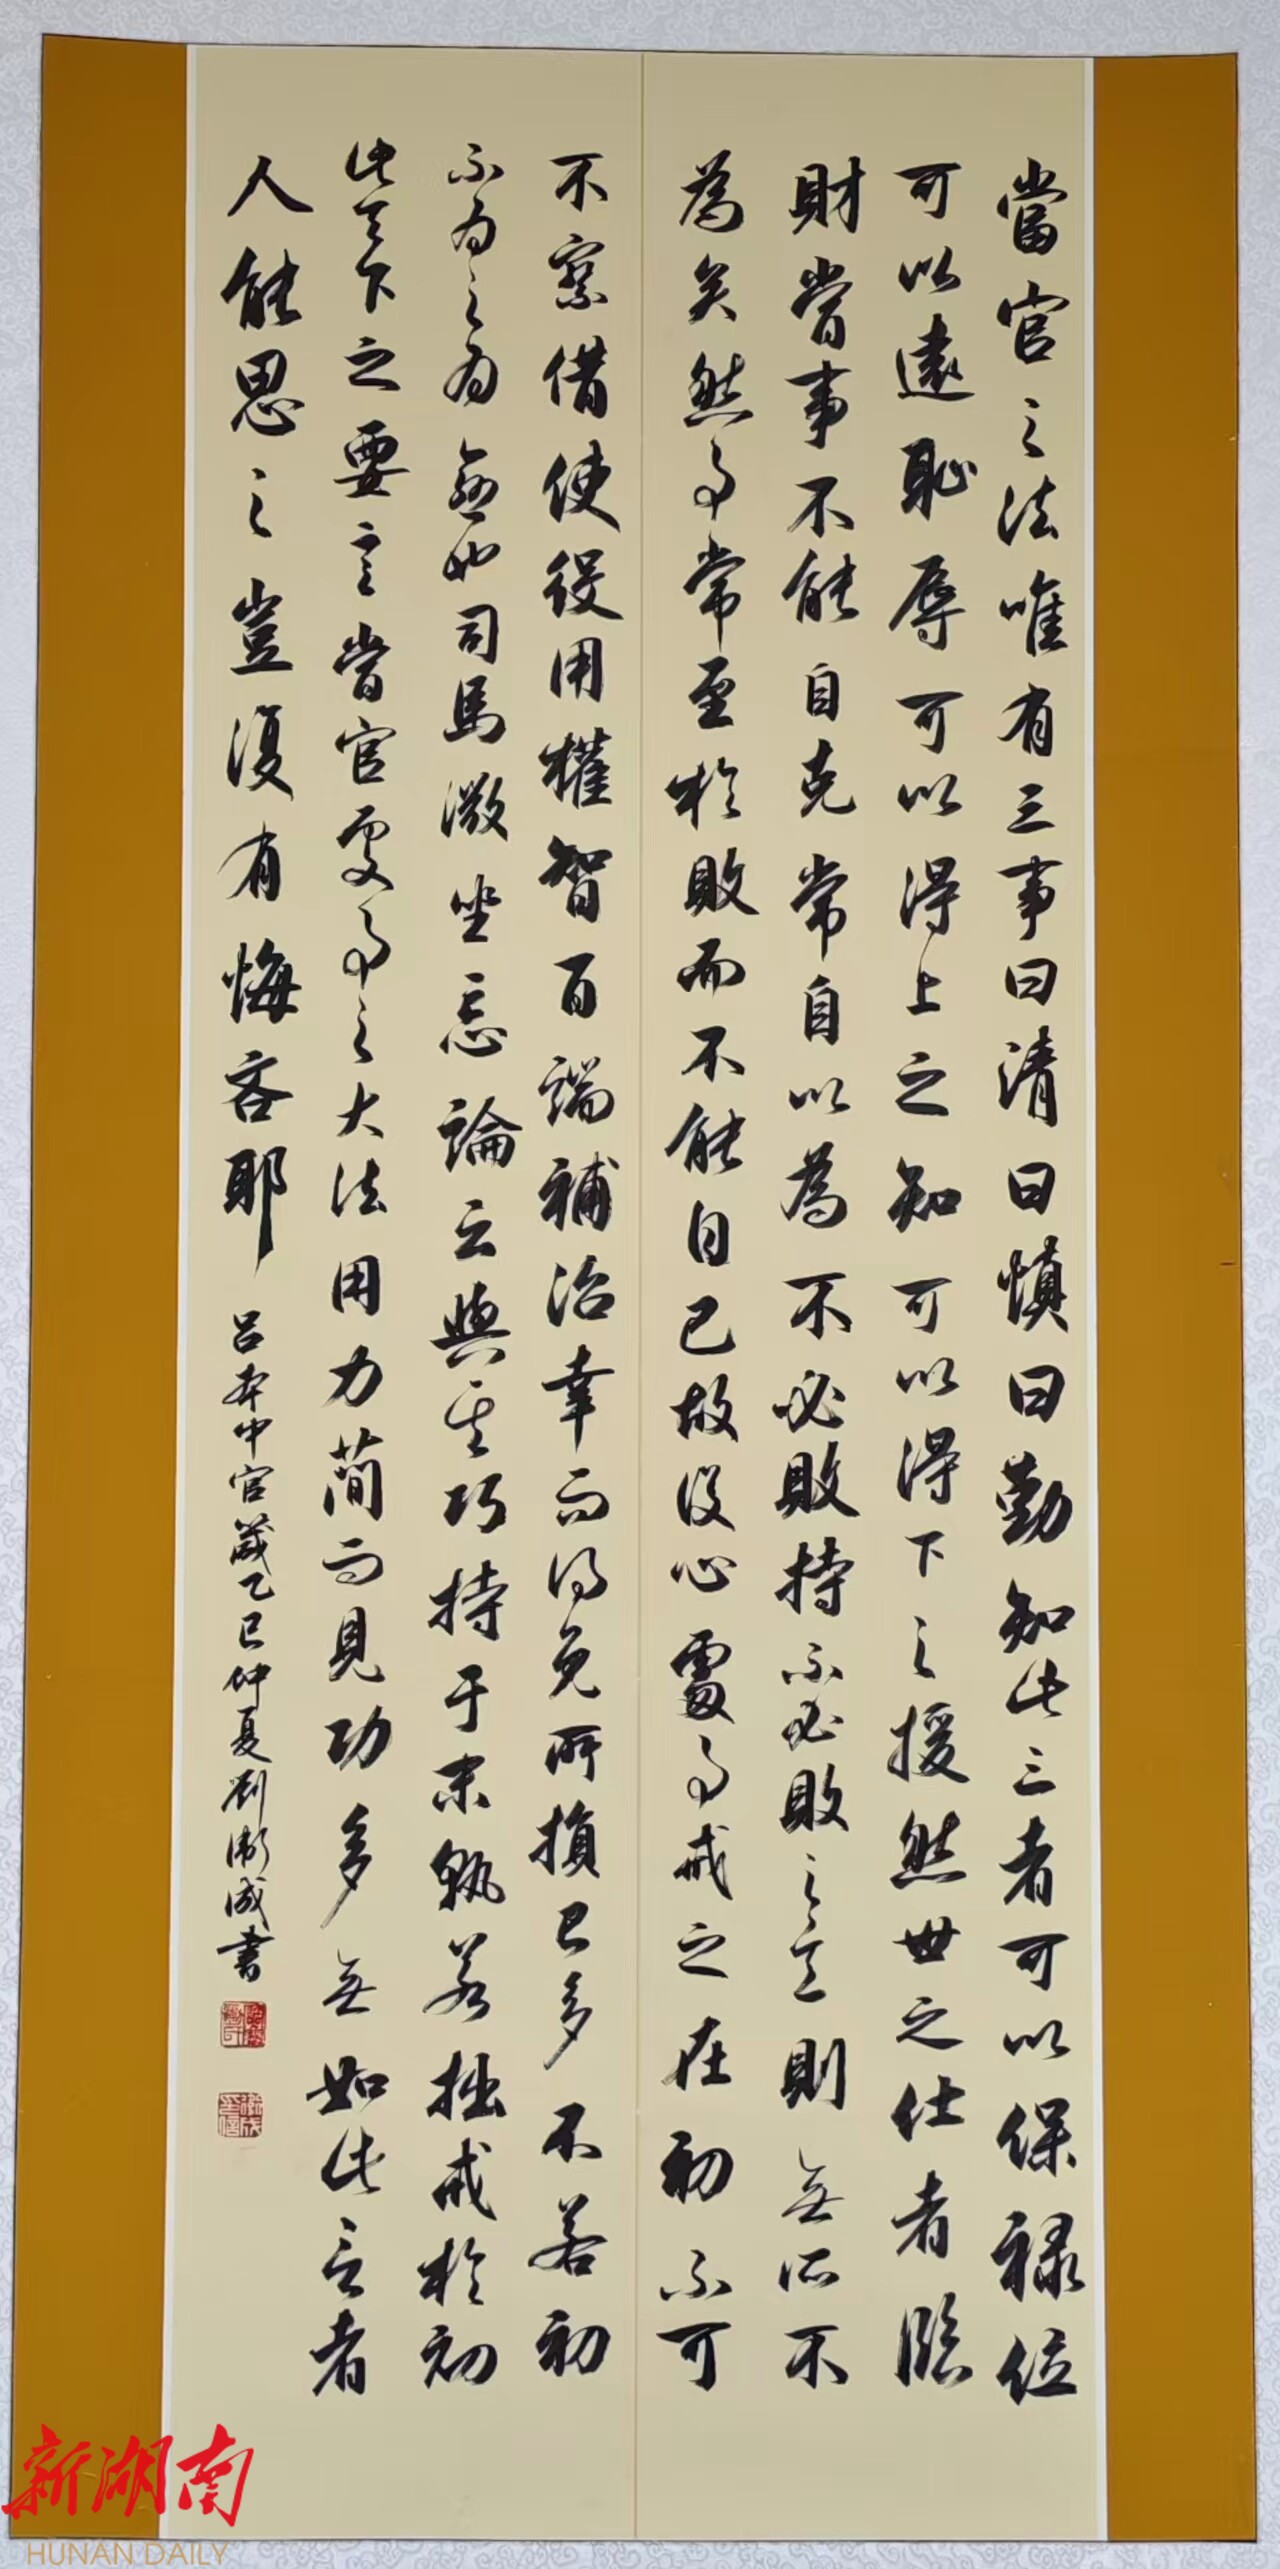 當官之法唯有三事曰清曰慎曰勤知此三者可以保祿位
可以遠恥辱可以得上之知可以得下之援然世之仕者臨
財當事不能自克常自以為不必敗持不必敗之意則無所不
為矣然事常至於敗而不能自已故設心處事戒之在初不可
不察借使役用權智百端補治幸而得免所損已多不若初
不為之為愈也司馬微坐忘論云與其巧持于末孰若拙戒於初
此天下之要言當官處事之大法用力簡而見功多無如此言者
人能思之豈復有悔吝耶 呂本中官箴乙巳仲夏劉成書
新湖南
HUNAN DAILY